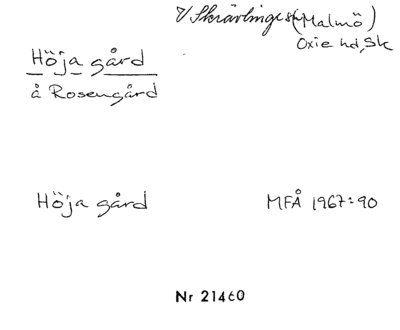 V Skrävlinge sn (Malmö)
Oxie hd, Sk
Höja gård
å Rosengård
Höja gård MFÅ 1967:90
Nr 21460